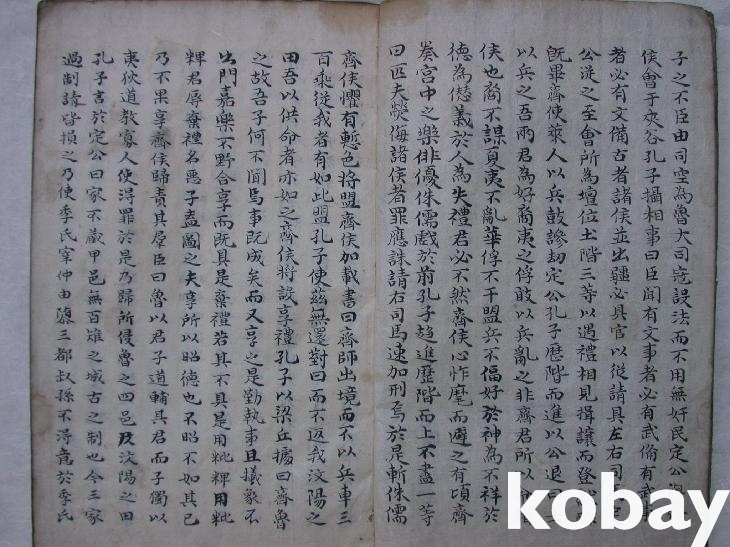 子之不臣由司空為魯大司寇設法而不用無奸民定公
侯會于夾谷孔子攝相事曰臣聞有文事者必有武俻有武
者必有文備古者諸侯並出疆必具官以從請具左右司
公從之至會所為壇位土階三等以遇禮相見揖讓而登
旣畢齊使萊人以兵鼓譟劫定公孔子歷階而進以公退曰
以兵之吾兩君為好裔夷之俘敢以兵亂之非齊君所以
侯也裔不謀夏夷不亂華俘不干盟兵不偪好於神為不祥於
德為愆義於人為失禮君必不然齊侯心怍麾而避之有頃齊
奏宮中之樂俳優侏儒戲於前孔子趨進歷階而上不盡一等
曰匹夫熒侮諸侯者罪應誅請右司馬速加刑焉於是斬侏儒
齊侯懼有慙色將盟齊侯加載書曰齊師出境而不以兵車三
百乘從我者有如此盟孔子使茲無還對曰而不返我汶陽之
田吾以供命者亦如之齊侯將設享禮孔子以梁丘據曰齊魯
之故吾子何不聞焉事既成矣而又享之是勤執事且犧象不
出門嘉樂不野合享而既具是棄禮若其不具是用粃粺用粃
粺君辱棄禮名惡子盍圖之夫享所以昭德也不昭不如其已
乃不果享齊侯歸責其羣臣曰魯以君子道輔其君而子獨以
夷狄道教寡人使得罪於是乃歸所侵魯之四邑及汶陽之田
孔子言於定公曰家不藏甲邑無百雉之城古之制也今三家
過制請皆損之乃使季氏宰仲由隳三都叔孫不得意於季氏
kobay